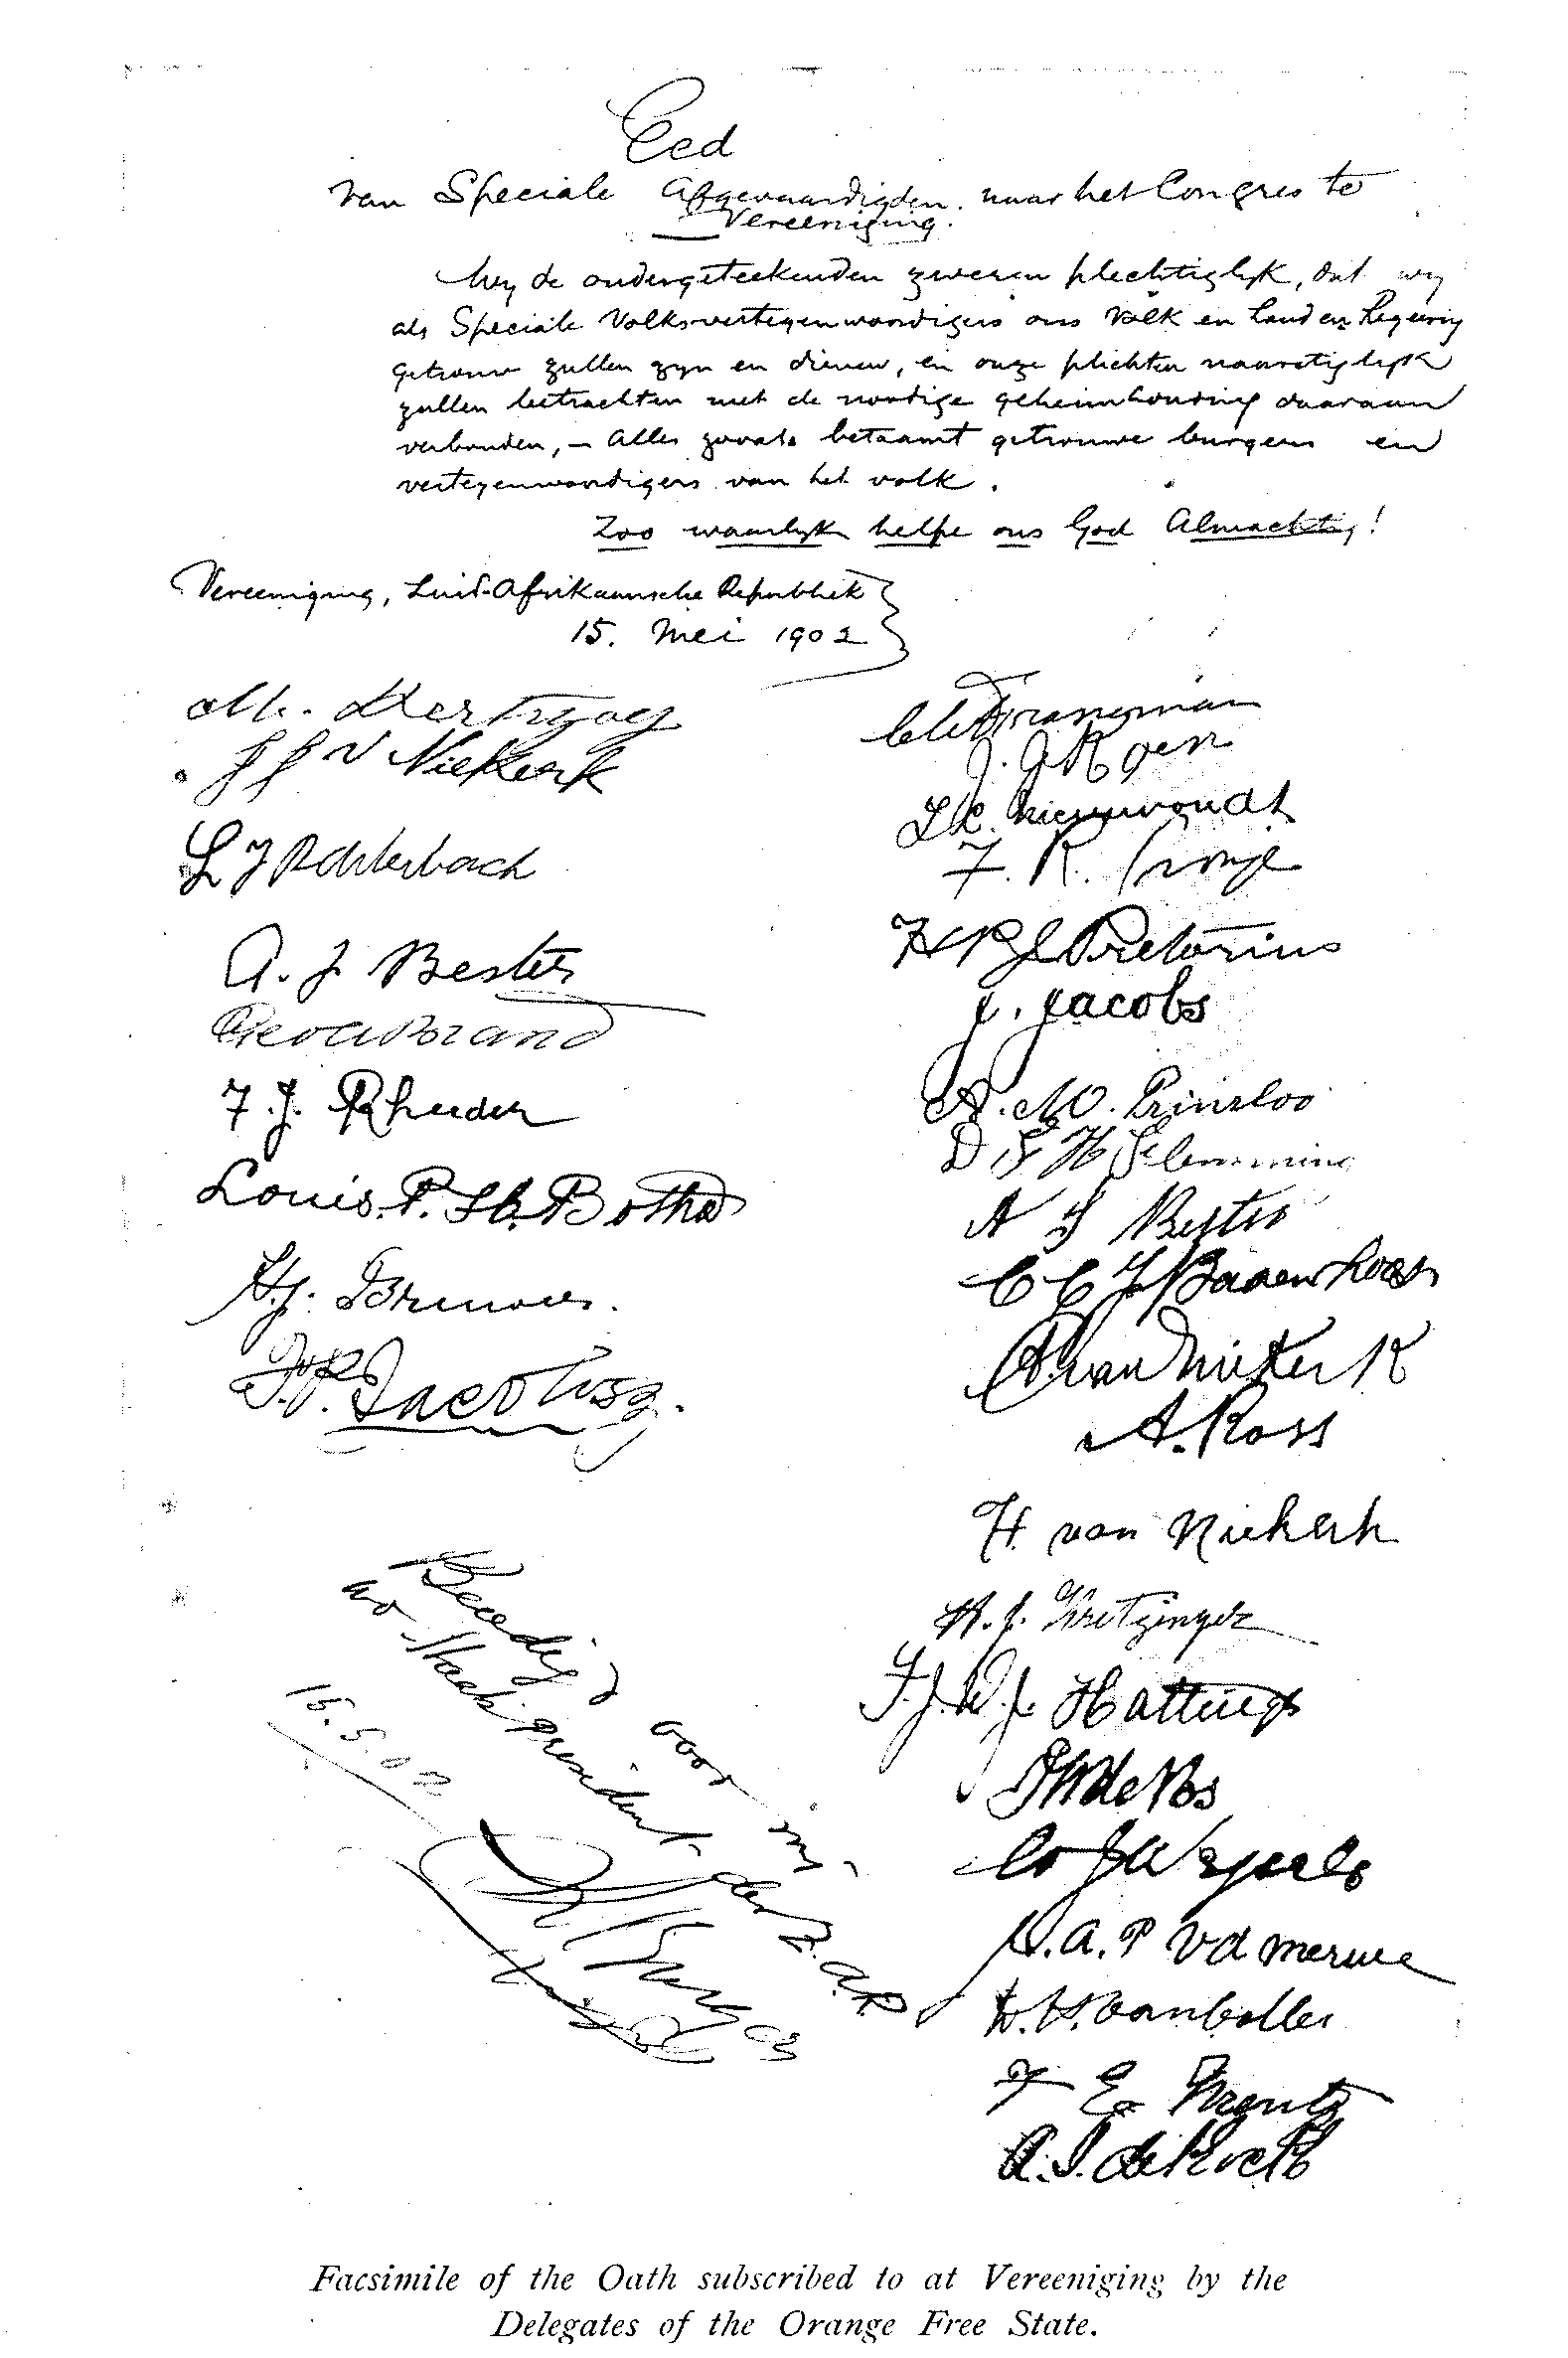 Eed
van Speciale Afgevaardigden naar het Congres te
Vereeniging.
Wy de ondergeteekenden zweren plechtiglyk, dat wy
als Speciale Volksvertegenwoordigers ons Volk en Land en Regeering
getrouw zullen zyn en dienen, en onze plichten naarstiglyk
zullen betrachten met de noodige geheimhouding daaraan
verbonden, – Alles zooals betaamt getrouwe burgers en
vertegenwoordigers van het volk.
Zoo waarlyk helpe ons God Almachtig!
Vereeniging, Zuid-Afrikaansche Republiek
15. Mei 1902
Hertzog
v Niekerk
A. J. Bester
Brand
F. J. Rheeder
Louis. P. H. Botha
H.J. Brouwer.
C.C. Froneman
J. J. Koen
Nieuwoudt
F. R. Cronje
H P J Pretorius
J. Jacobs
A. M. Prinsloo
D F H Flemming
A J Bester
C C J Badenhorst
A. van Niekerk
A. Ross
H. van Niekerk
Kritzinger
F. J. W. J. Hattingh
de Vos
C. A. van Niekerk
H. A. P v d merwe
vanColler
F E Mentz
A. J. de Kock
Beedigd voor mij
Staatspresident der Z.A.R
15.5.02
Burger
Facsimile of the Oath subscribed to at Vereeniging by the
Delegates of the Orange Free State.